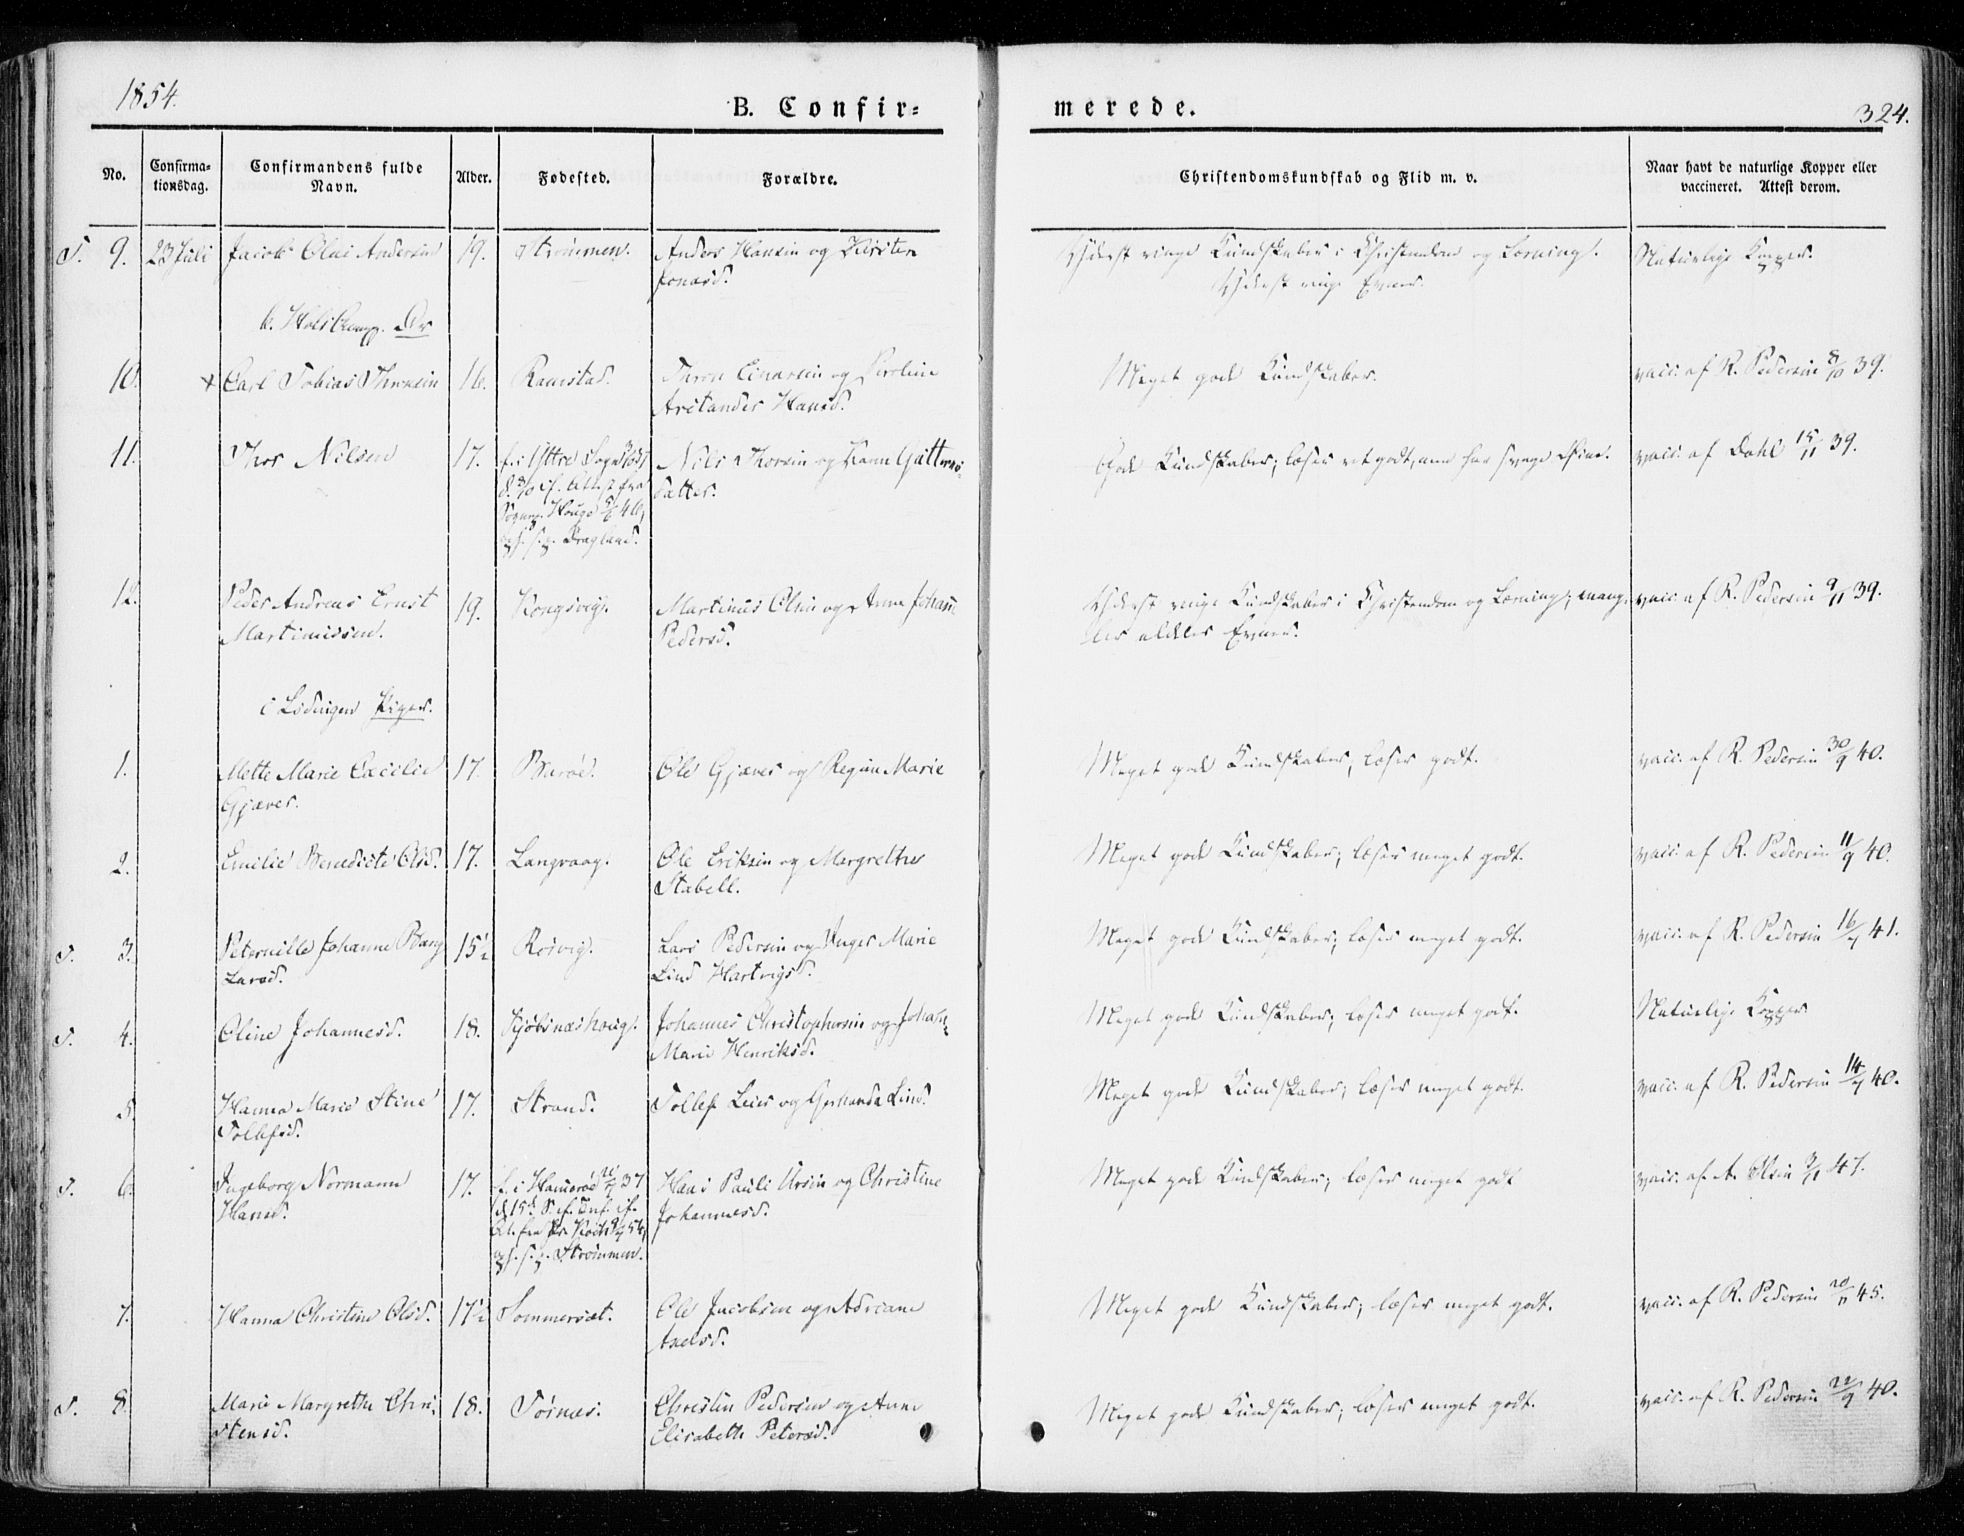 1854.
B. Confir=
merede.
324.
No.
Confirma-
tionsdag.
Confirmandens fulde
Navn.
Alder.
Fødested.
Forældre.
Christendomskundskab og Flid m. v.
Naar havt de naturlige Kopper eller
vaccineret. Attest derom.
9. 23 Juli Jacob Olai Andersen 19. Strømmen. Anders Hansen og Kirsten
Jonasd.
Yderst ringe Kundskaber i Christendom og Læsning.
Yderst ringe Evner.
Naturlige Kopper.
10. Carl Tobias Thronsen 16. Ramstad. Thron Einarsen og Peroline
Arctander Hansd.
Meget gode Kundskaber.
vacc. af R. Pedersen 8/10 39.
11. Thor Nilsen 17. f. i Yttre Sogn
Sogne Houge
Dragland.
Nils Thorsen og Karen
datter.
Gode Kundskaber; læser ret godt, men har svage Øine.
vacc. af Dahl 15/11 39.
12. Peder Andreas Ernst
Martinussen.
19. Kongsvig. Martinus Olsen og Anne Johan
Pedersd.
Yderst ringe Kundskaber i Christendom og Læsning; mang
ler aldeles Evner.
vacc. af R. Pedersen 9/11 39.
i Lødingen Piger.
1. Mette Marie Cæcilie
Gjæver.
17. Barøe. Ole Gjæver og Regine Marie
Meget gode Kundskaber; læser godt.
vacc. af R. Pedersen 30/9 40.
2. Emilie Benedicte Olsd. 17. Langvaag. Ole Eriksen og Margrethe
Stabell.
Meget gode Kundskaber; læser meget godt.
vacc. af R. Pedersen 11/9 40.
3. Peternille Johanne Bang
Larsd.
15½ Rosvig. Lars Pedersen og Inger Marie
Lind Hartvigsd.
Meget gode Kundskaber; læser meget godt.
vacc. af R. Pedersen 16/7 41.
4. Oline Johannesd. 18. Kjøbsnæshoug. Johannes Christophersen og Johan
Marie Henriksd.
Meget gode Kundskaber; læser meget godt.
Naturlige Kopper
5. Hanna Marie Stine
Tollefsd.
17. Strand. Tollef Leier og Gerhanda Lind.
Meget gode Kundskaber; læser meget godt.
vacc. af R. Pedersen 14/9 40.
6. Ingeborg Normann
Hansd.
17. f. i Hamerøe 37
Strømmen.
Hans Pauli Ursin og Christine
Johannesd.
Meget gode Kundskaber; læser meget godt
vacc. af A. Olsen 47.
7. Hanna Christine Olsd. 17½ Sommersæt. Ole Jacobsen og Adriane
Axelsd.
Meget gode Kundskaber; læser meget godt.
vacc. af R. Pedersen 20/11 45.
8. Marie Margrethe Chri-
stensd.
18. Tornæs. Christen Pedersen og Anne
Elisabeth Petersd.
Meget gode Kundskaber; læser meget godt.
vacc. af R. Pedersen 22/9 40.